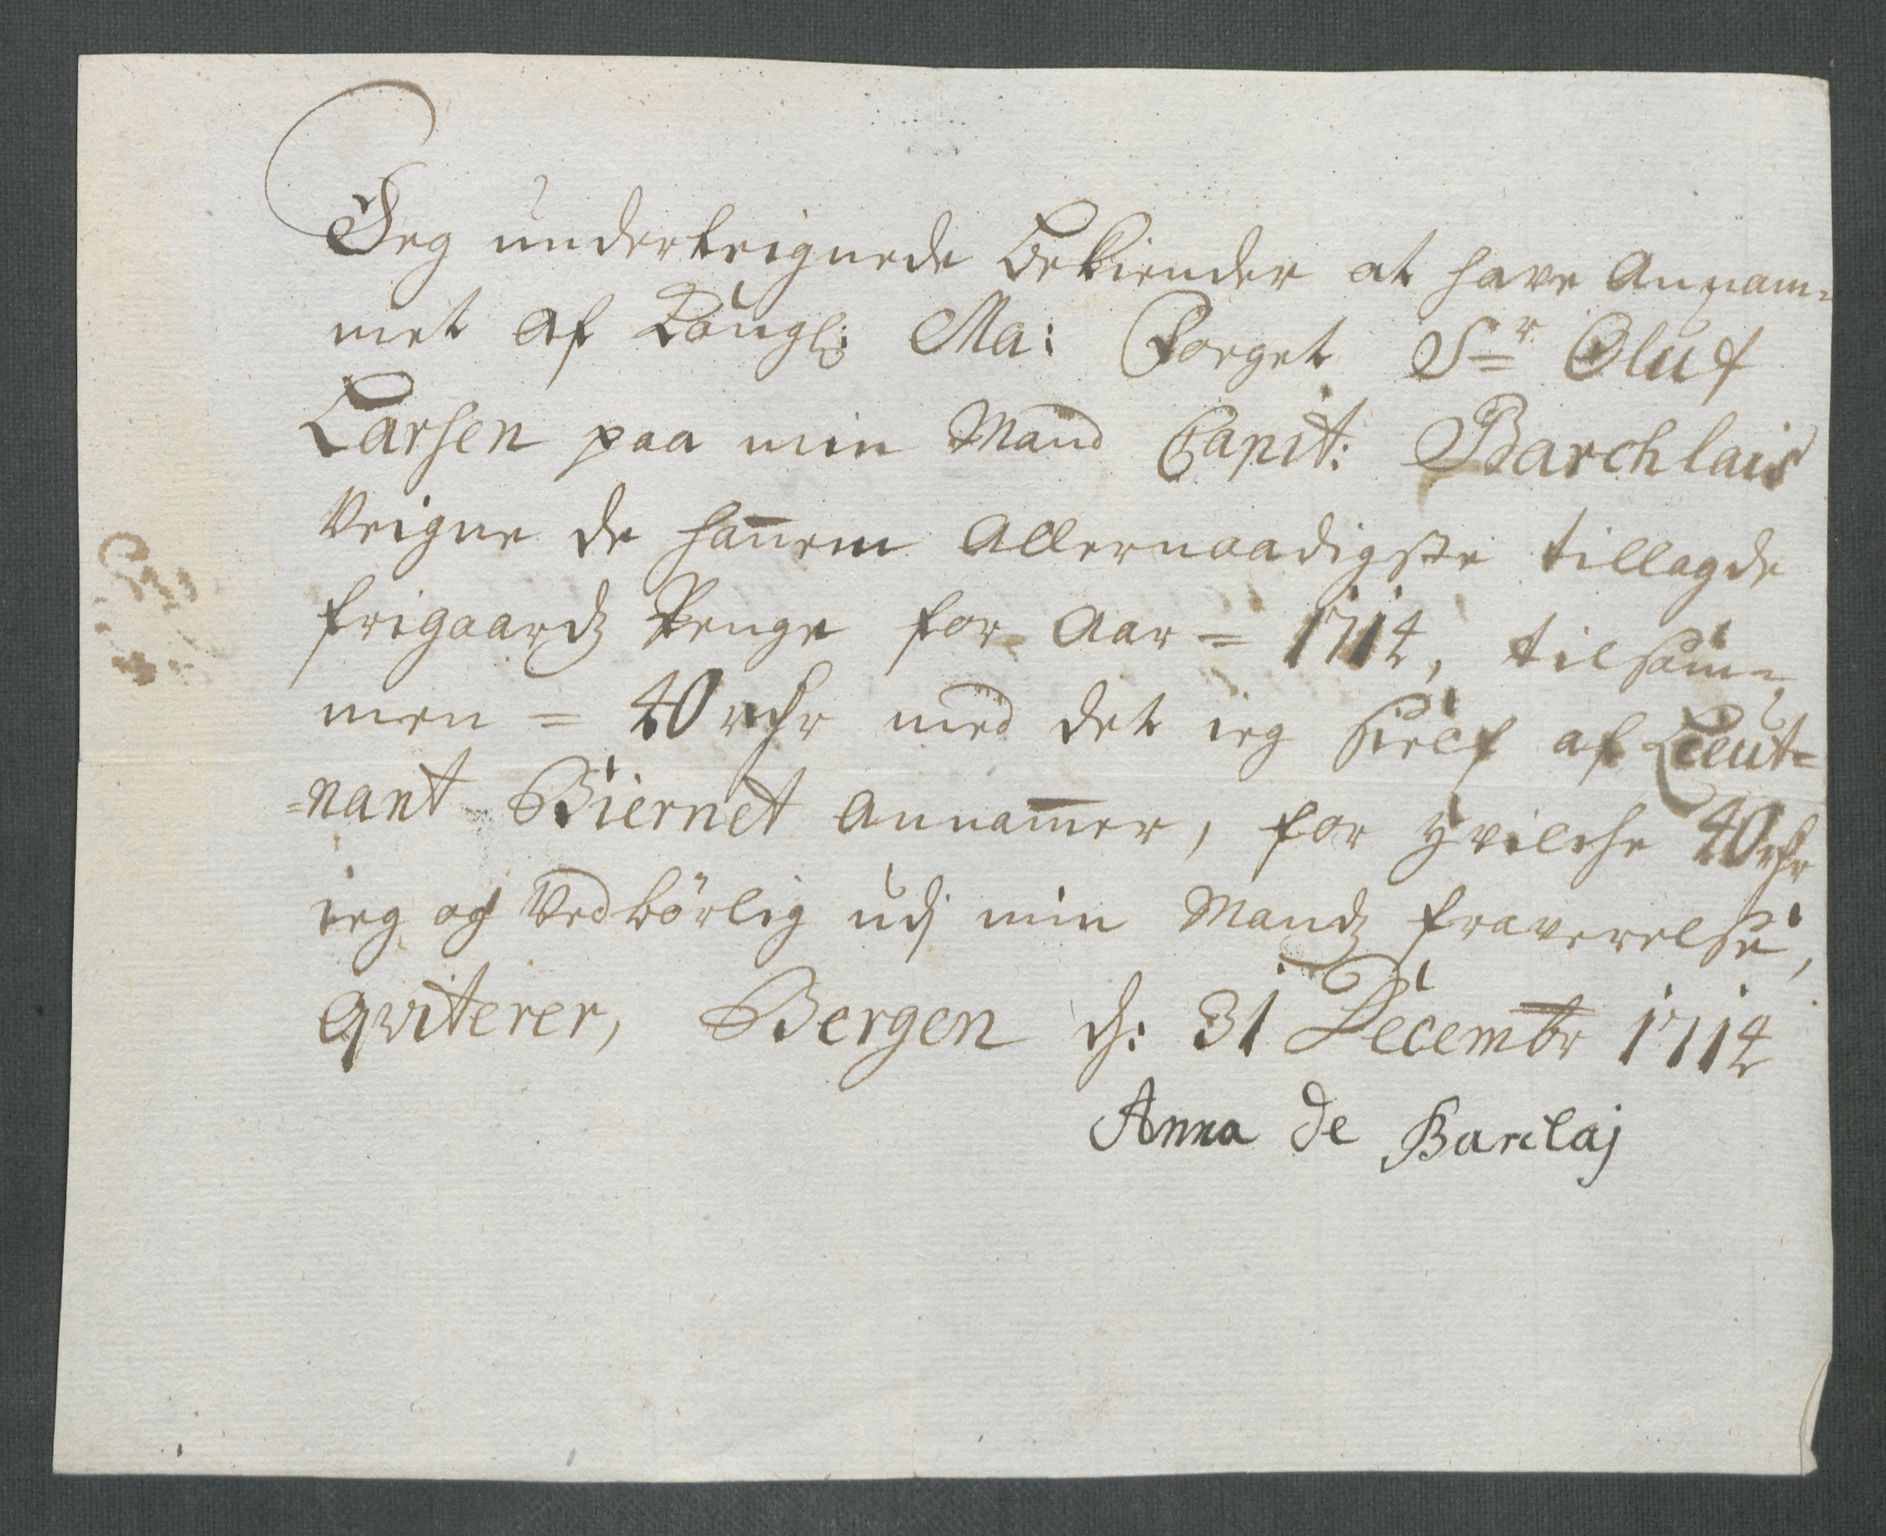 Jeg underteignede bekiender at have Annam=
met af Kongl: Ma: Foeget Sr Oluf
Larsen paa min Mand Capit: Barchlais
Veigne de hannem Allernaadigste tillagde
frigaardz Penge for Aar = 1714, tilsam=
men = 40 rdr med det ieg sielf af Lieut=
=nant Biernet Annammer, for hvilche 40 rdr
ieg og Vedbörlig udj min Mandz fraverelse,
qviterer, Bergen d: 31 Decembr 1714
Anna de Barclaj